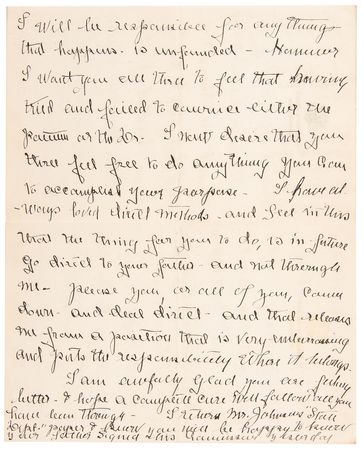 I will be responsible for any thing
that happens is unfounded - However
I want you all three to feel that having
tried and failed to convince either the
patient or the Dr. I
three feel free to do anything you can
to accomplish your purpose - I have al-
ways loved direct methods - and feel in this
that the thing for you to do, is in future
go direct to your father - and not through
me - please you, or all of you, come
down - and deal direct - and that releases
me from a position that is very embarrassing
and puts the responsibility where it belongs.
I am awfully glad you are feeling
better - & hope a complete cure will follow all you
have been through - I return Mr. Johnson's
papers & know you will be happy to know
your father signed this yesterday